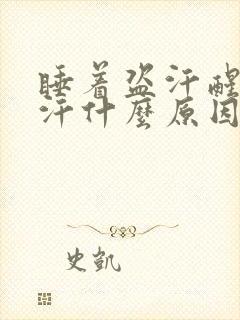 睡着盗汗醒
汗什麼原因
史凯